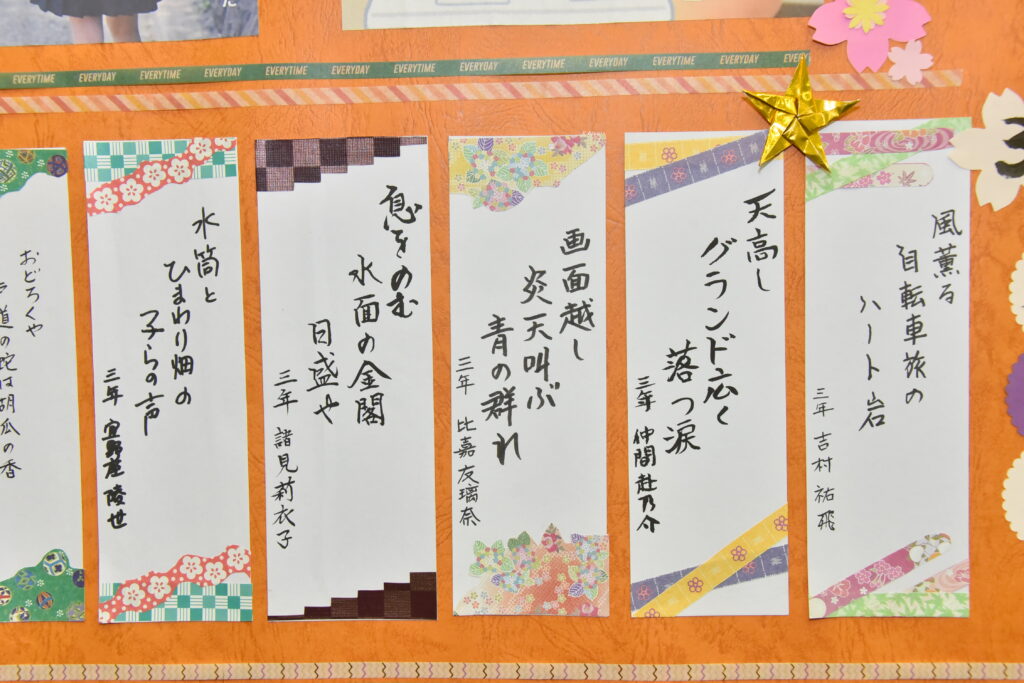 EVERYTIME EVERYDAY EVERYTIME EVERYDAY EVERYTIME EVERYDAY EVERYTIME EVERYDAY EVERYTIME EVERYDAY EVERYTIME EVERYDAY
風薫る
自転車旅の
ハート岩
三年 吉村 祐飛
天高し
グランド広く
落つ涙
三年 仲間 赴乃介
画面越し
炎天叫ぶ
青の群れ
三年 比嘉友璃奈
息をのむ
水面の金閣
日盛や
三年 諸見莉衣子
水筒と
ひまわり畑の
子らの声
三年 宜野座 陵世
おどろくや
道の蛇は胡瓜の香